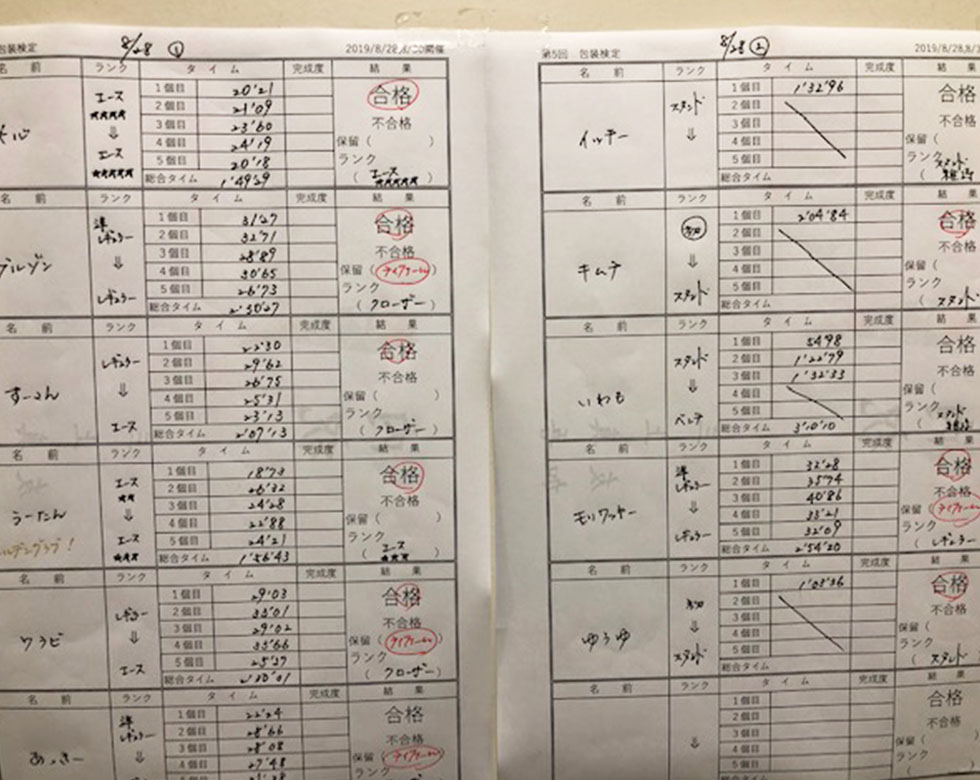 包装検定 8/28 ① 2019/8/28,8/30開催
名 前 ランク タ イ ム 完成度 結 果
エース ★★★★ ⇩ エース ★★★★★
1個目 20'21
2個目 21'09
3個目 23'60
4個目 24'19
5個目 20'18
総合タイム 1'49'29
合格
不合格
保留（ ）
ランク
（ エース ★★★★★ ）
名 前 ランク タ イ ム 完成度 結 果
準レギュラー ⇩ レギュラー
1個目 31'27
2個目 32'71
3個目 28'89
4個目 30'65
5個目 26'73
総合タイム 2'30'27
合格
不合格
保留（
ランク
（ クローザー ）
名 前 ランク タ イ ム 完成度 結 果
すーさん
レギュラー ⇩ エース
1個目 22'30
2個目 29'62
3個目 26'75
4個目 25'31
5個目 23'13
総合タイム 2'07'13
合格
不合格
保留（ ）
ランク
（ クローザー ）
名 前 ランク タ イ ム 完成度 結 果
うーたん
エース ★★ ⇩ エース ★★★
1個目 18'73
2個目 26'32
3個目 24'28
4個目 22'88
5個目 24'21
総合タイム 1'56'43
合格
不合格
保留（ ）
ランク
（ エース ★★★ ）
名 前 ランク タ イ ム 完成度 結 果
ワラビ
レギュラー ⇩ エース
1個目 29'03
2個目 33'01
3個目 29'02
4個目 33'66
5個目 25'27
総合タイム 2'30'01
合格
不合格
保留（
ランク
（ クローザー ）
名 前 ランク タ イ ム 完成度 結 果
あっきー
準レギュラー ⇩
1個目 22'24
2個目 28'66
3個目 28'08
4個目 27'48
5個目
合格
不合格
保留（
ランク
第5回 包装検定 8/28 ② 2019/8/28,8/3
名 前 ランク タ イ ム 完成度 結 果
イッチー
スタンド ⇩
1個目 1'32'96
2個目
3個目
4個目
5個目
総合タイム
合格
不合格
保留（
ランク
（ スタンド
名 前 ランク タ イ ム 完成度 結 果
キムチ
⇩ スタンド
1個目 2'04'84
2個目
3個目
4個目
5個目
総合タイム
合格
不合格
保留（
ランク
（ スタンド
名 前 ランク タ イ ム 完成度 結 果
いわも
スタンド ⇩ ベンチ
1個目 54'98
2個目 1'22'79
3個目 1'32'33
4個目
5個目
総合タイム 3'10'10
合格
不合格
保留（
ランク
（ スタンド
名 前 ランク タ イ ム 完成度 結 果
モリワッキー
準レギュラー ⇩ レギュラー
1個目 32'28
2個目 35'74
3個目 40'86
4個目 33'21
5個目 32'09
総合タイム 2'54'20
合格
不合格
保留（
ランク
（ レギュラー
名 前 ランク タ イ ム 完成度 結 果
ゆうゆ
⇩ スタンド
1個目 1'03'36
2個目
3個目
4個目
5個目
総合タイム
合格
不合格
保留（
ランク
（ スタンド
名 前 ランク タ イ ム 完成度 結 果
⇩
1個目
2個目
3個目
4個目
5個目
合格
不合格
保留（
ランク